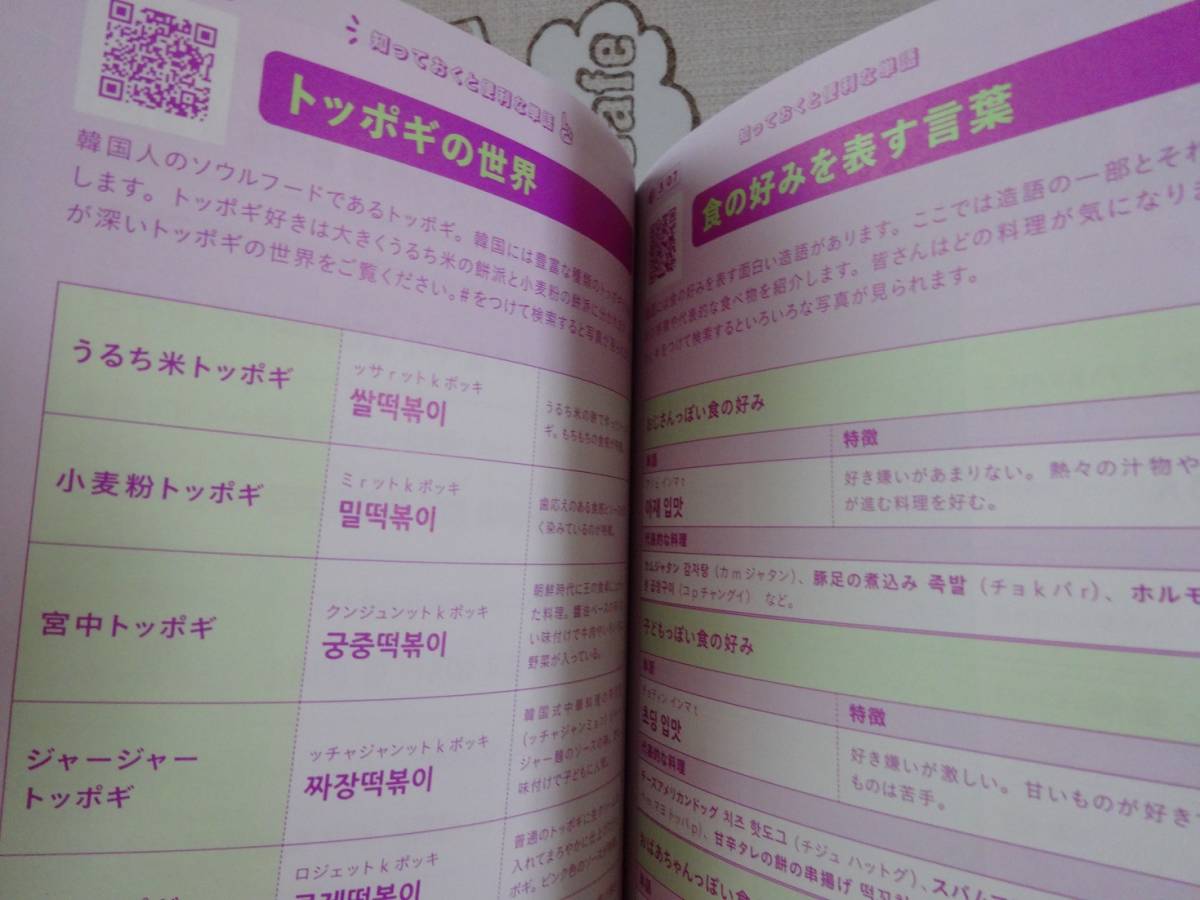 知っておくと便利な単語
トッポギの世界
韓国人のソウルフードであるトッポギ。韓国には豊富な種類のトッポギ
します。トッポギ好きは大きくうるち米の餅派と小麦粉の餅派に分かれ
が深いトッポギの世界をご覧ください。#をつけて検索すると写真が
うるち米トッポギ
ッサrットkポッキ
쌀떡볶이
うるち米の餅で作った
ギ。もちもちの食感が
小麦粉トッポギ
ミrットkポッキ
밀떡볶이
歯応えのある食感
く染みているのが特徴。
宮中トッポギ
クンジュンットkポッキ
궁중떡볶이
朝鮮時代に王の食卓に
た料理。醤油ベースの
い味付けで牛肉や
野菜が入っている。
ジャージャー
トッポギ
ッチャジャンットkポッキ
짜장떡볶이
韓国式中華料理の
(ッチャジャンミョン)
ジャー麺のソースの
味付けで子どもに人気。
ロジェットkポッキ
로제떡볶이
普通のトッポギに生クリーム
入れてまろやかに仕上げた
ポギ。ピンク色のソースが
afe
知っておくと便利な単語
107
食の好みを表す言葉
には食の好みを表す面白い造語があります。ここでは造語の一部とそれ
や代表的な食べ物を紹介します。皆さんはどの料理が気になりま
#をつけて検索するといろいろな写真が見られます。
おじさんっぽい食の好み
単語
特徴
アジェ インマt
아재 입맛
好き嫌いがあまりない。熱々の汁物や
が進む料理を好む。
代表的な料理
カムジャタン 감자탕 (カmジャタン)、豚足の煮込み 족발 (チョkパr)、ホルモ
곱창구이 (コpチャングイ) など。
子どもっぽい食の好み
単語
特徴
チョディン インマt
초딩 입맛
好き嫌いが激しい。甘いものが好きで
ものは苦手。
代表的な料理
チーズアメリカンドッグ 치즈 핫도그 (チジュ ハットグ)、スパム
mマヨトッパp)、甘辛タレの餅の串揚げ
おばあちゃんっぽい食
単語